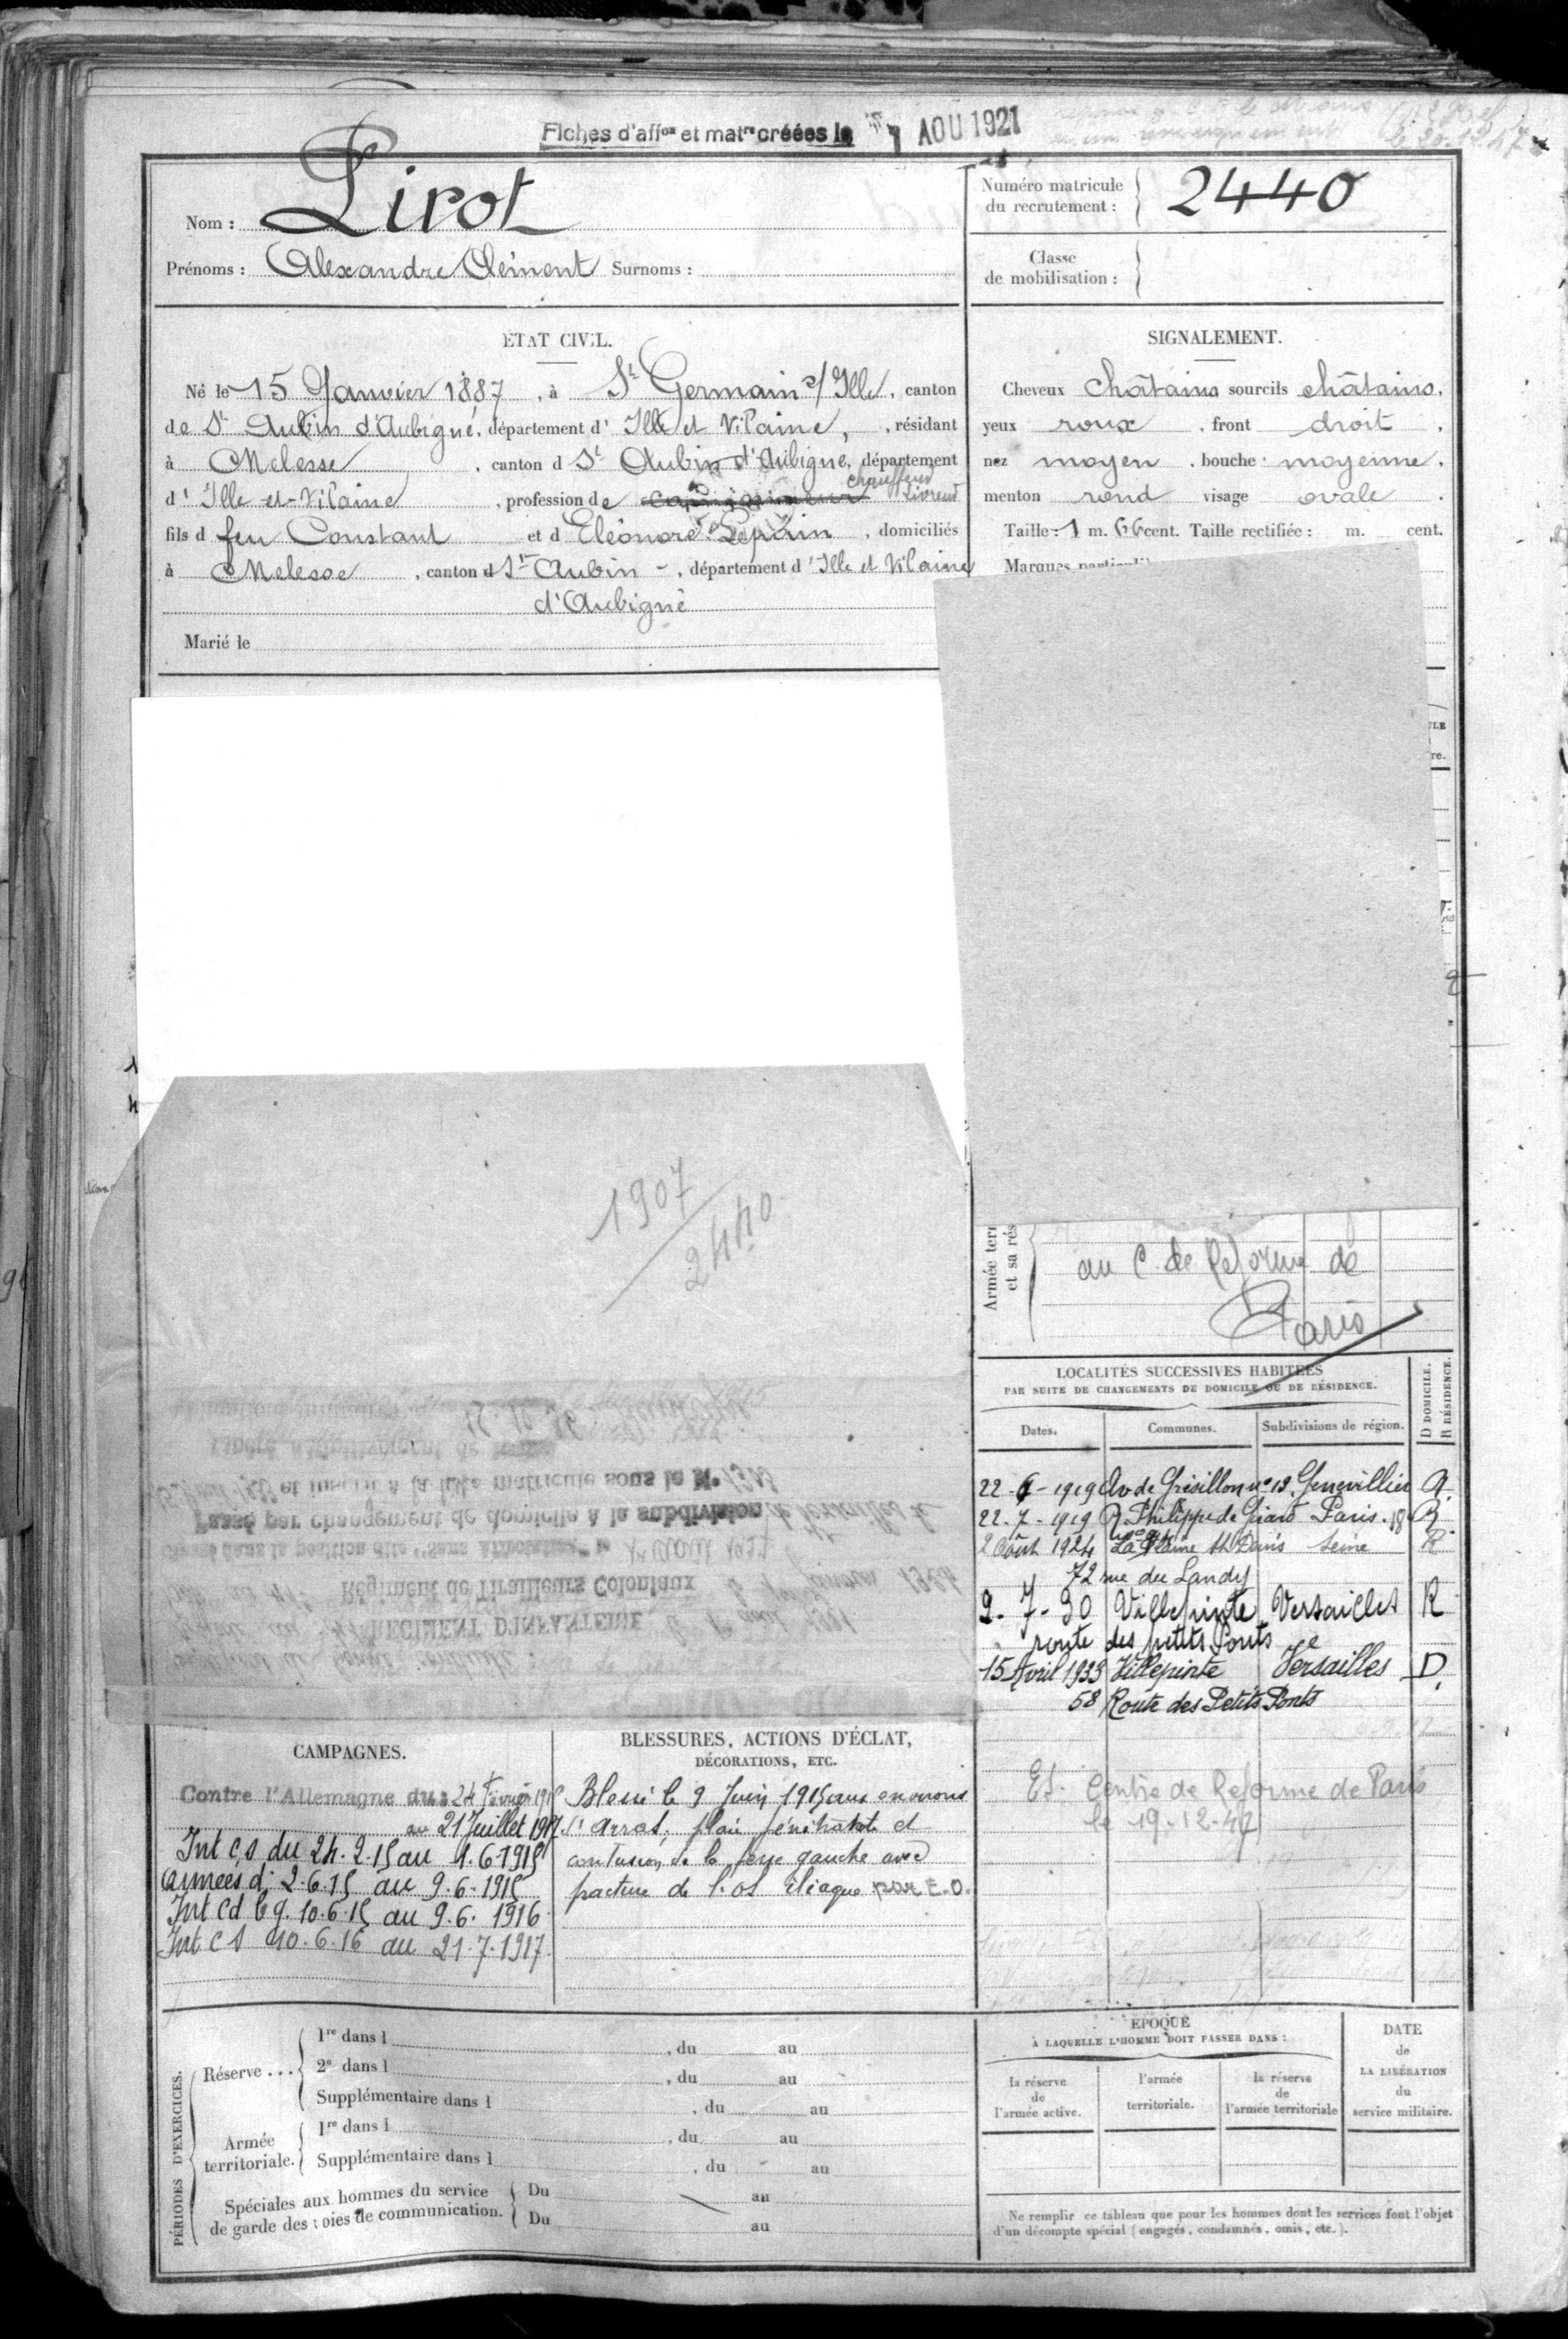 Fiches d'affon et matre créées le 7 AOU 1921
Nom : Pirot
Prénoms : Alexandre Clément Surnoms :
Numéro matricule du recrutement : 2440
Classe de mobilisation :
ÉTAT CIVIL.
Né le 15 Janvier 1887, à St Germain s/ Ille, canton
de St Aubin d'Aubigné, département d' Ille et Vilaine, résidant
à Melesse, canton d St Aubin d'Aubigné, département
chauffeur
d' Ille-et-Vilaine, profession de Livreur
fils d feu Constant et d Eléonore Leprin, domiciliés
à Melesse, canton d St Aubin -, département d' Ille et Vilaine
d'Aubigné
Marié le
SIGNALEMENT.
Cheveux châtains sourcils châtains,
yeux roux, front droit,
nez moyen, bouche moyenne,
menton rond visage ovale.
Taille : 1 m. 66 cent. Taille rectifiée : m. cent.
1907
2440
Armée terr
et sa rés
au C. de Réforme de
Paris
LOCALITÉS SUCCESSIVES HABITÉES
PAR SUITE DE CHANGEMENTS DE DOMICILE OU DE RÉSIDENCE.
D DOMICILE.
R RÉSIDENCE.
Dates. Communes. Subdivisions de région.
22-6-1919 Av de Grésillon no 19. Genevillier
22-7-1919 R Philippe de Girard Paris. 18e R
2 Août 1924 La Plaine St Denis Seine R
72 rue du Landy
2-7-30 Villepinte Versailles R
route des petits Ponts
15 Avril 1933 Villepinte Versailles D.
58 Route des Petits Ponts
Et. Centre de Réforme de Paris
le 19-12-47
CAMPAGNES.
Contre l'Allemagne du : 24 Février 1915
au 21 Juillet 1917
Int C,S du 24.2.15 au 1.6.1915
Armées d: 2.6.15 au 9.6.1915
Int Cd bg. 10.6.15 au 9.6.1916
Int C S 10.6.16 au 21.7.1917.
BLESSURES, ACTIONS D'ÉCLAT,
DÉCORATIONS, ETC.
Blessé le 9 Juin 1915 aux environs
d'Arras, plaie pénétrante et
contusion de la fesse gauche avec
fracture de l'os iliaque par E.O.
PÉRIODES D'EXERCICES.
Réserve...
1re dans l , du au
2e dans l , du au
Supplémentaire dans l , du au
Armée territoriale.
1re dans l , du au
Supplémentaire dans l , du au
Spéciales aux hommes du service
de garde des voies de communication.
Du au
Du au
ÉPOQUE
À LAQUELLE L'HOMME DOIT PASSER DANS :
la réserve de l'armée active.
l'armée territoriale.
la réserve de l'armée territoriale
DATE de LA LIBÉRATION du service militaire.
Ne remplir ce tableau que pour les hommes dont les services font l'objet
d'un décompte spécial (engagés, condamnés, omis, etc.).